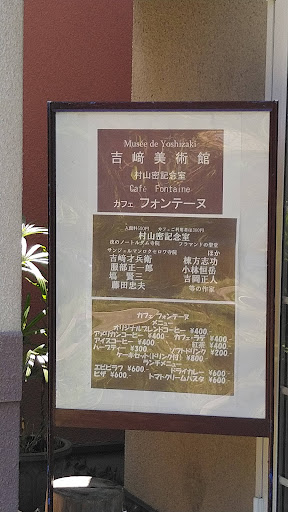 Musée de Yoshizaki
吉﨑美術館
村山密記念室
Café Fontaine
カフェ フォンテーヌ
入館料500円 カフェご利用者は300円
村山密記念室
夜のノートルダム寺院 フラマンドの聖堂
サンジェルマンロクセロワ寺院 ほか
吉崎才兵衛 棟方志功
服部正一郎 小林恒岳
塙 賢三 吉岡正人
藤田忠夫 等の作家
カフェ フォンテーヌ
メニュー
オリジナルブレンドコーヒー ¥400-
アメリカンコーヒー ¥400- カフェ・ラテ ¥400-
アイスコーヒー ¥400- 紅茶 ¥400-
ハーブティー ¥300- ソフトドリンク ¥200-
ケーキセット(ドリンク付) ¥800-
ランチメニュー
エビピラフ ¥600- ドライカレー ¥600-
ピザ ¥600- トマトクリームパスタ ¥600-